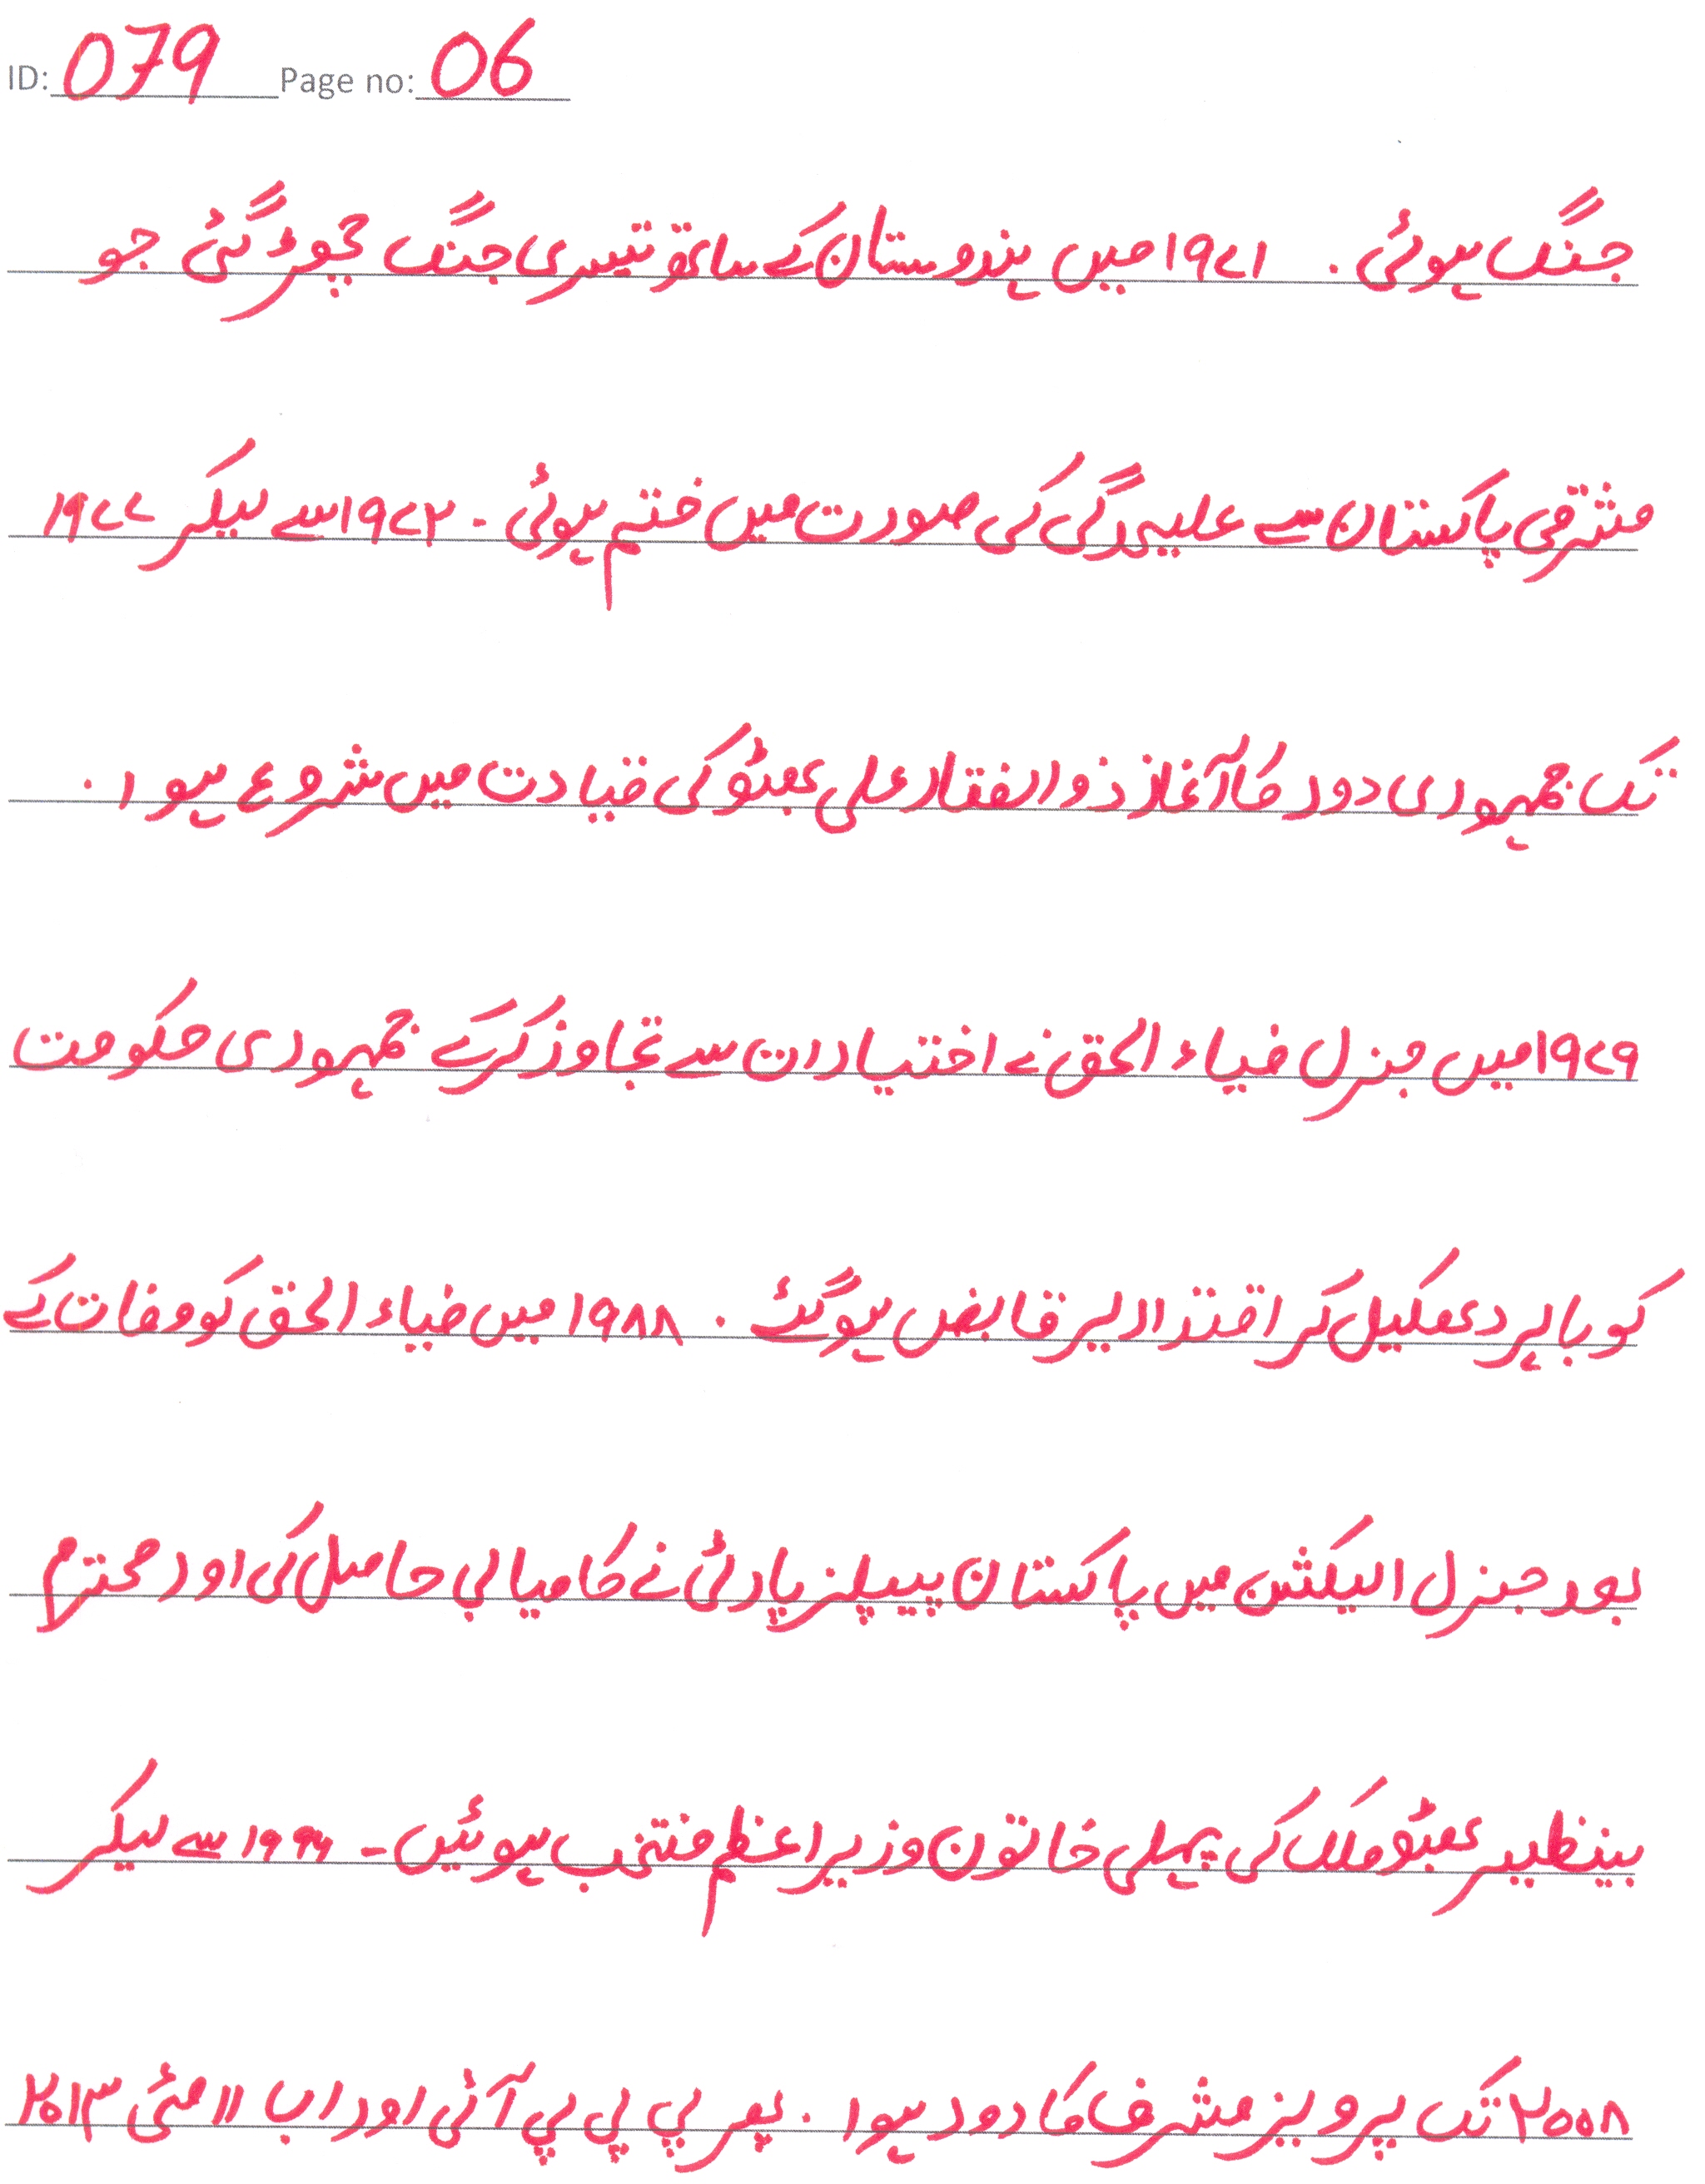 ID: 079 Page no: 06
جنگ ہوئی ۔ ۱۹۷۱ میں ہندوستان کے ساتھ تیسری جنگ چھڑ گئی جو
مشرقی پاکستان سے علیہدگی کی صورت میں ختم ہوئی ۔ ۱۹۷۲ سے لیکر ۱۹۷۷
تک جمہوری دور کا آغاز ذوالفقار علی بھٹو کی قیادت میں شروع ہوا ۔
۱۹۷۹ میں جنرل ضیاء الحق نے اختیارات سے تجاوز کرکے جمہوری حکومت
کو باہر دھکیل کر اقتدار پر قابض ہوگئے ۔ ۱۹۸۸ میں ضیاء الحق کو وفات کے
بعد جنرل الیکشن میں پاکستان پیپلز پارٹی نے کامیابی حاصل کی اور محترم
بینظیر بھٹو ملک کی پہلی خاتون وزیراعظم منتخب ہوئیں ۔ سے لیکر
۲۰۰۸ تک پرویز مشرف کا دور ہوا ۔ پھر پی پی پی آئی اور اب ۱۱ مئی ۲۰۱۳